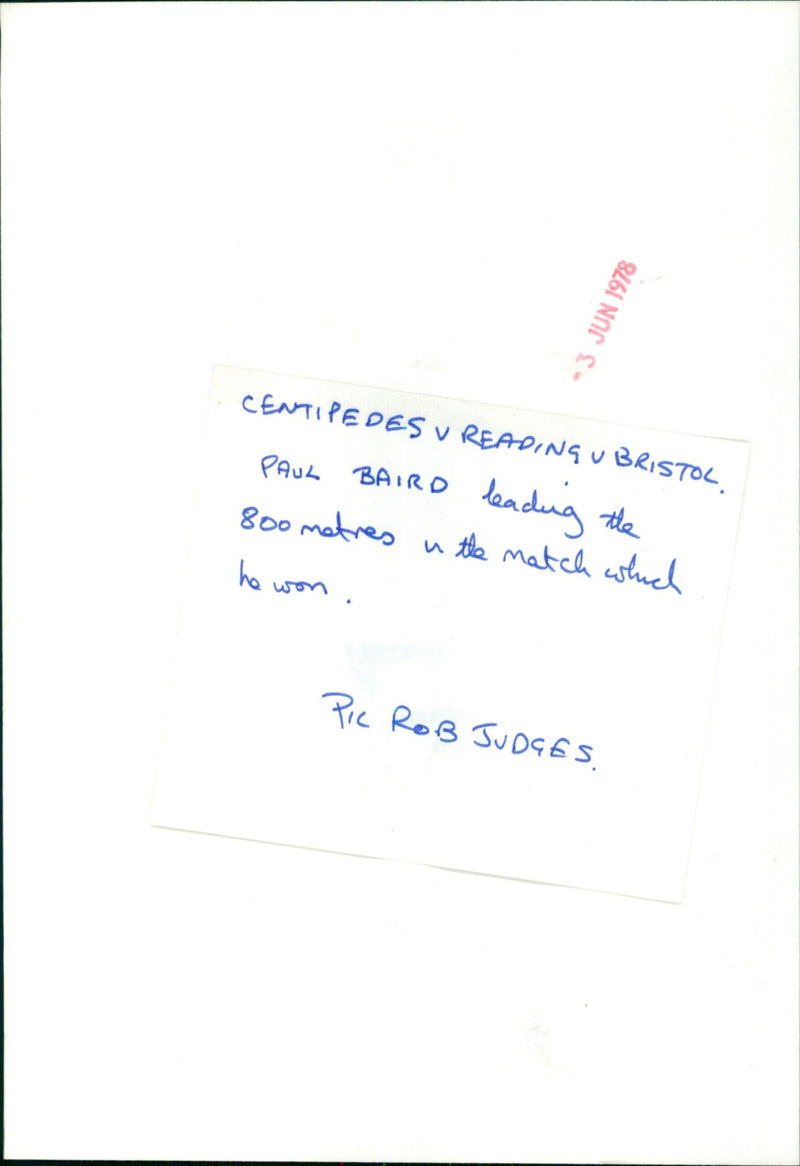 -3 JUN 1978
CENTIPEDES V READING V BRISTOL.
PAUL BAIRD leading the
800 metres in the match which
he won.
Pic ROB JUDGES.